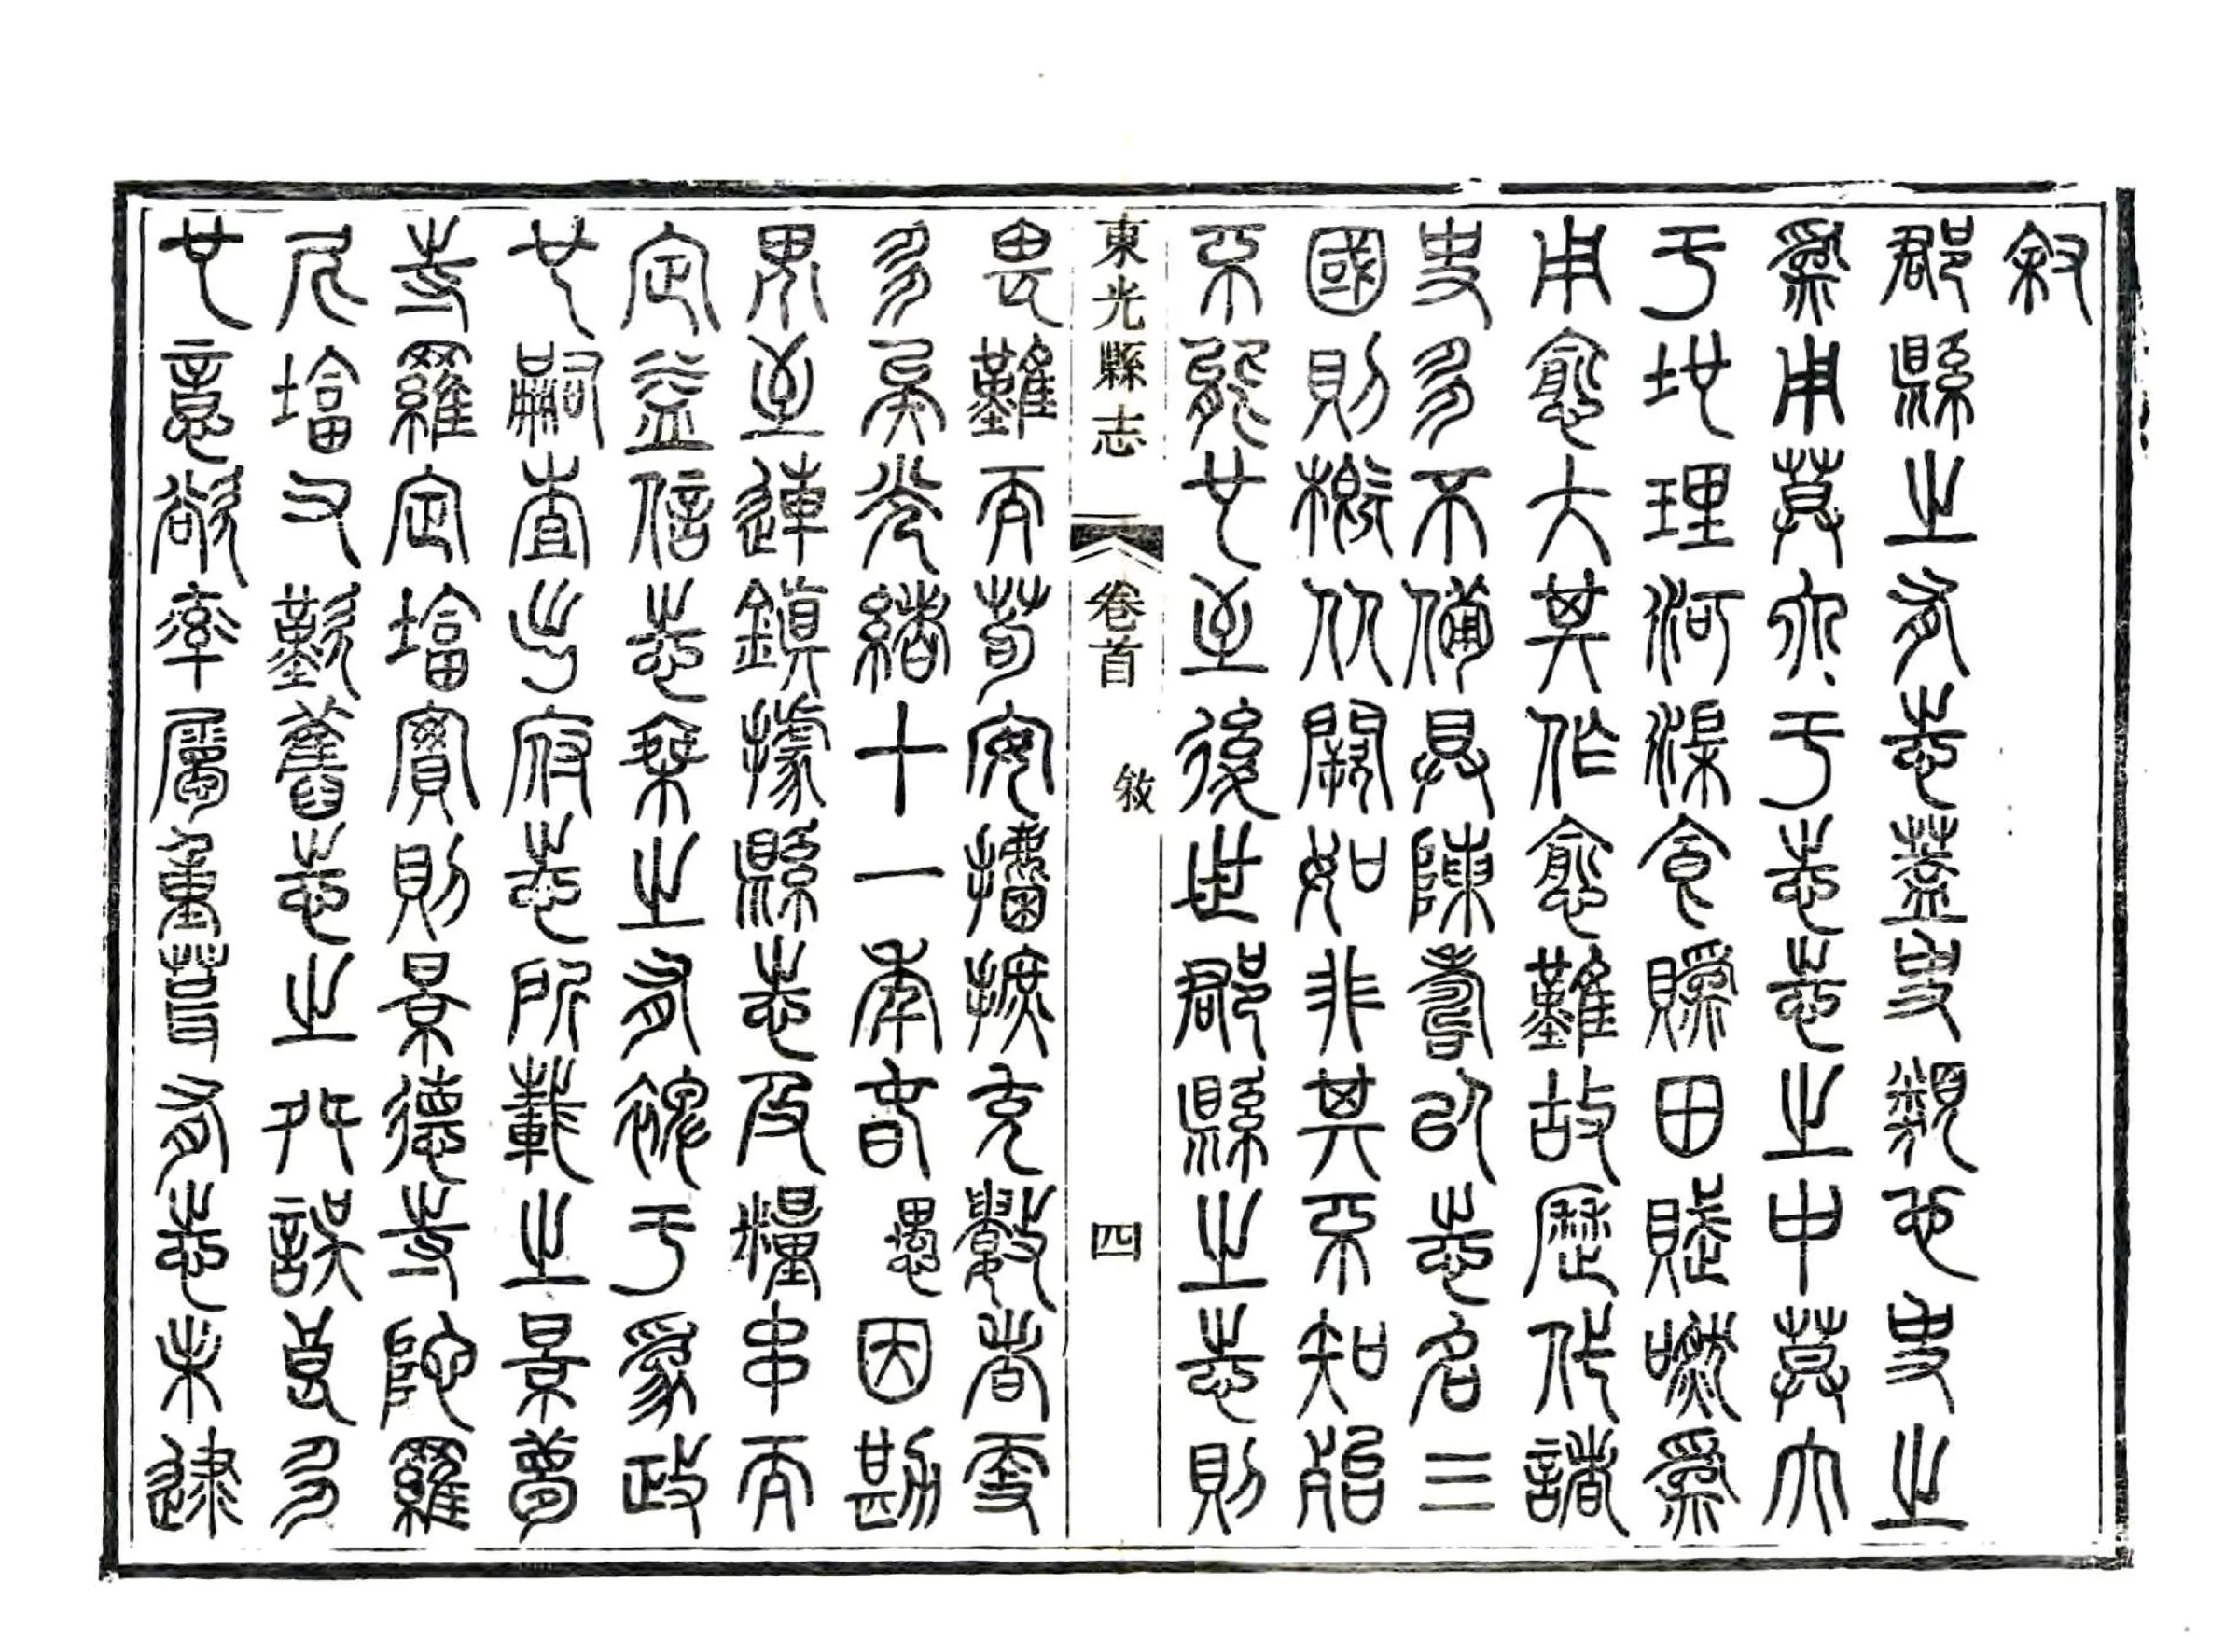 敘
郡縣之有志蓋史類也史之
爲用莫大于志志之中莫大
于地理河渠食貨田賦嘫爲
用愈大其作愈難故歷代諸
史多不備具陳壽以志名三
國則概從闕如非其不知殆
不能也至後世郡縣之志則
東光縣志 卷首 敘 四
畏難而苟安播摭充數者
多矣光緒十一年春愚因勘
界至連鎮據縣志及糧串而
定益信志乘之有裨于爲政
也嗣查此府志所載之景夢
寺羅定塔實則景德寺陀羅
尼塔又歎舊志之舛誤良多
也意欲率屬重有志未逮